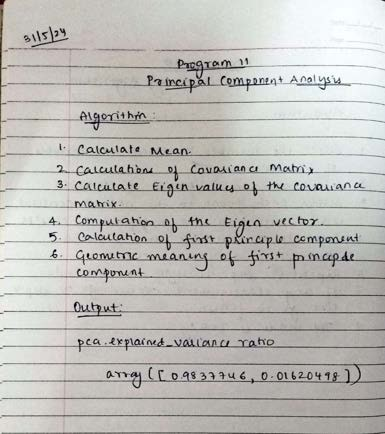 31/5/24
Program 11
Principal Component Analysis
Algorithm :
1. Calculate Mean.
2. Calculations of Covariance Matrix
3. Calculate Eigen values of the covariance
matrix.
4. Computation of the Eigen vector.
5. Calculation of first principle component
6. Geometric meaning of first principle
component
Output:
pca.explained_variance ratio
array ([0.9837746, 0.01620498])